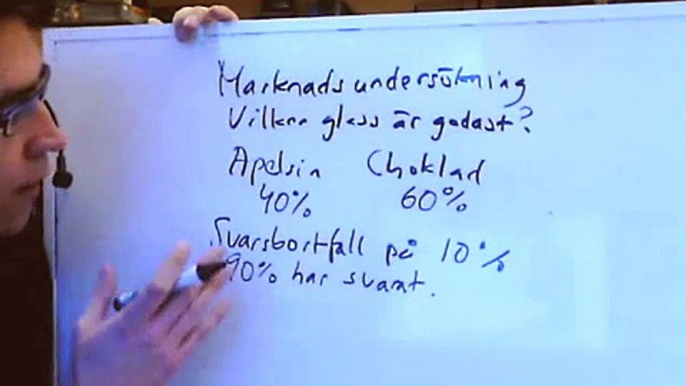 Marknadsundersökning
Vilken glass är godast?
Apelsin Choklad
40% 60%
Svarsbortfall på 10%
90% har svarat.